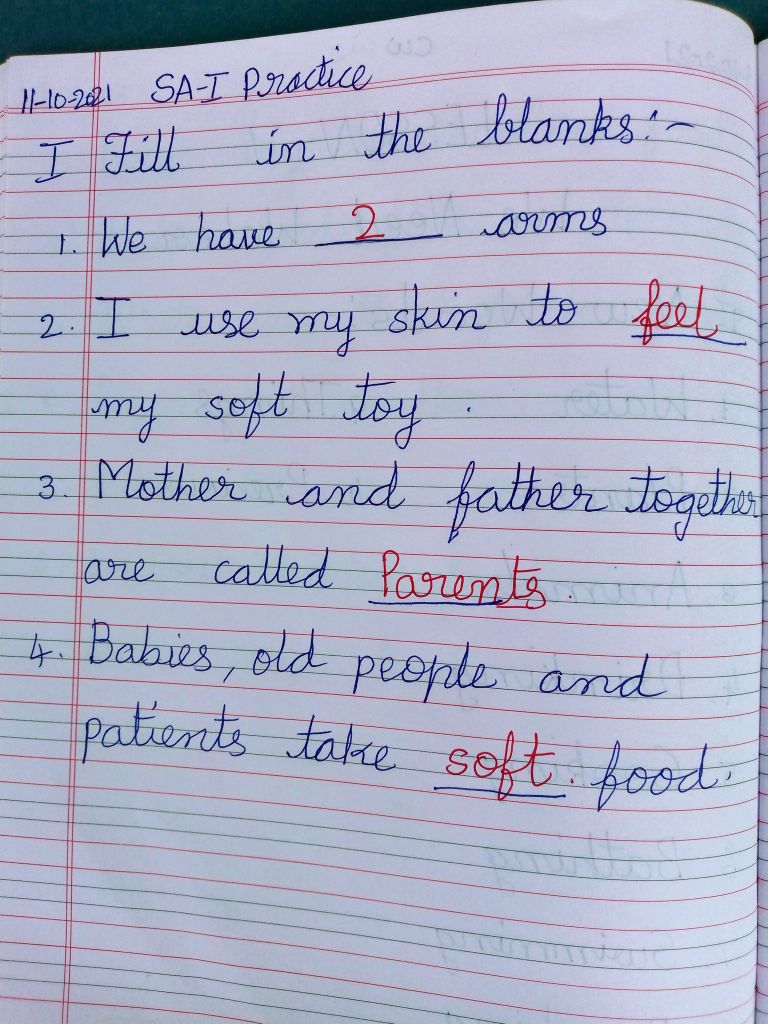 11-10-2021 SA-I Practice
I Fill in the blanks:-
1. We have 2 arms
2. I use my skin to feel
my soft toy.
3. Mother and father together
are called Parents.
4. Babies, old people and
patients take soft. food.